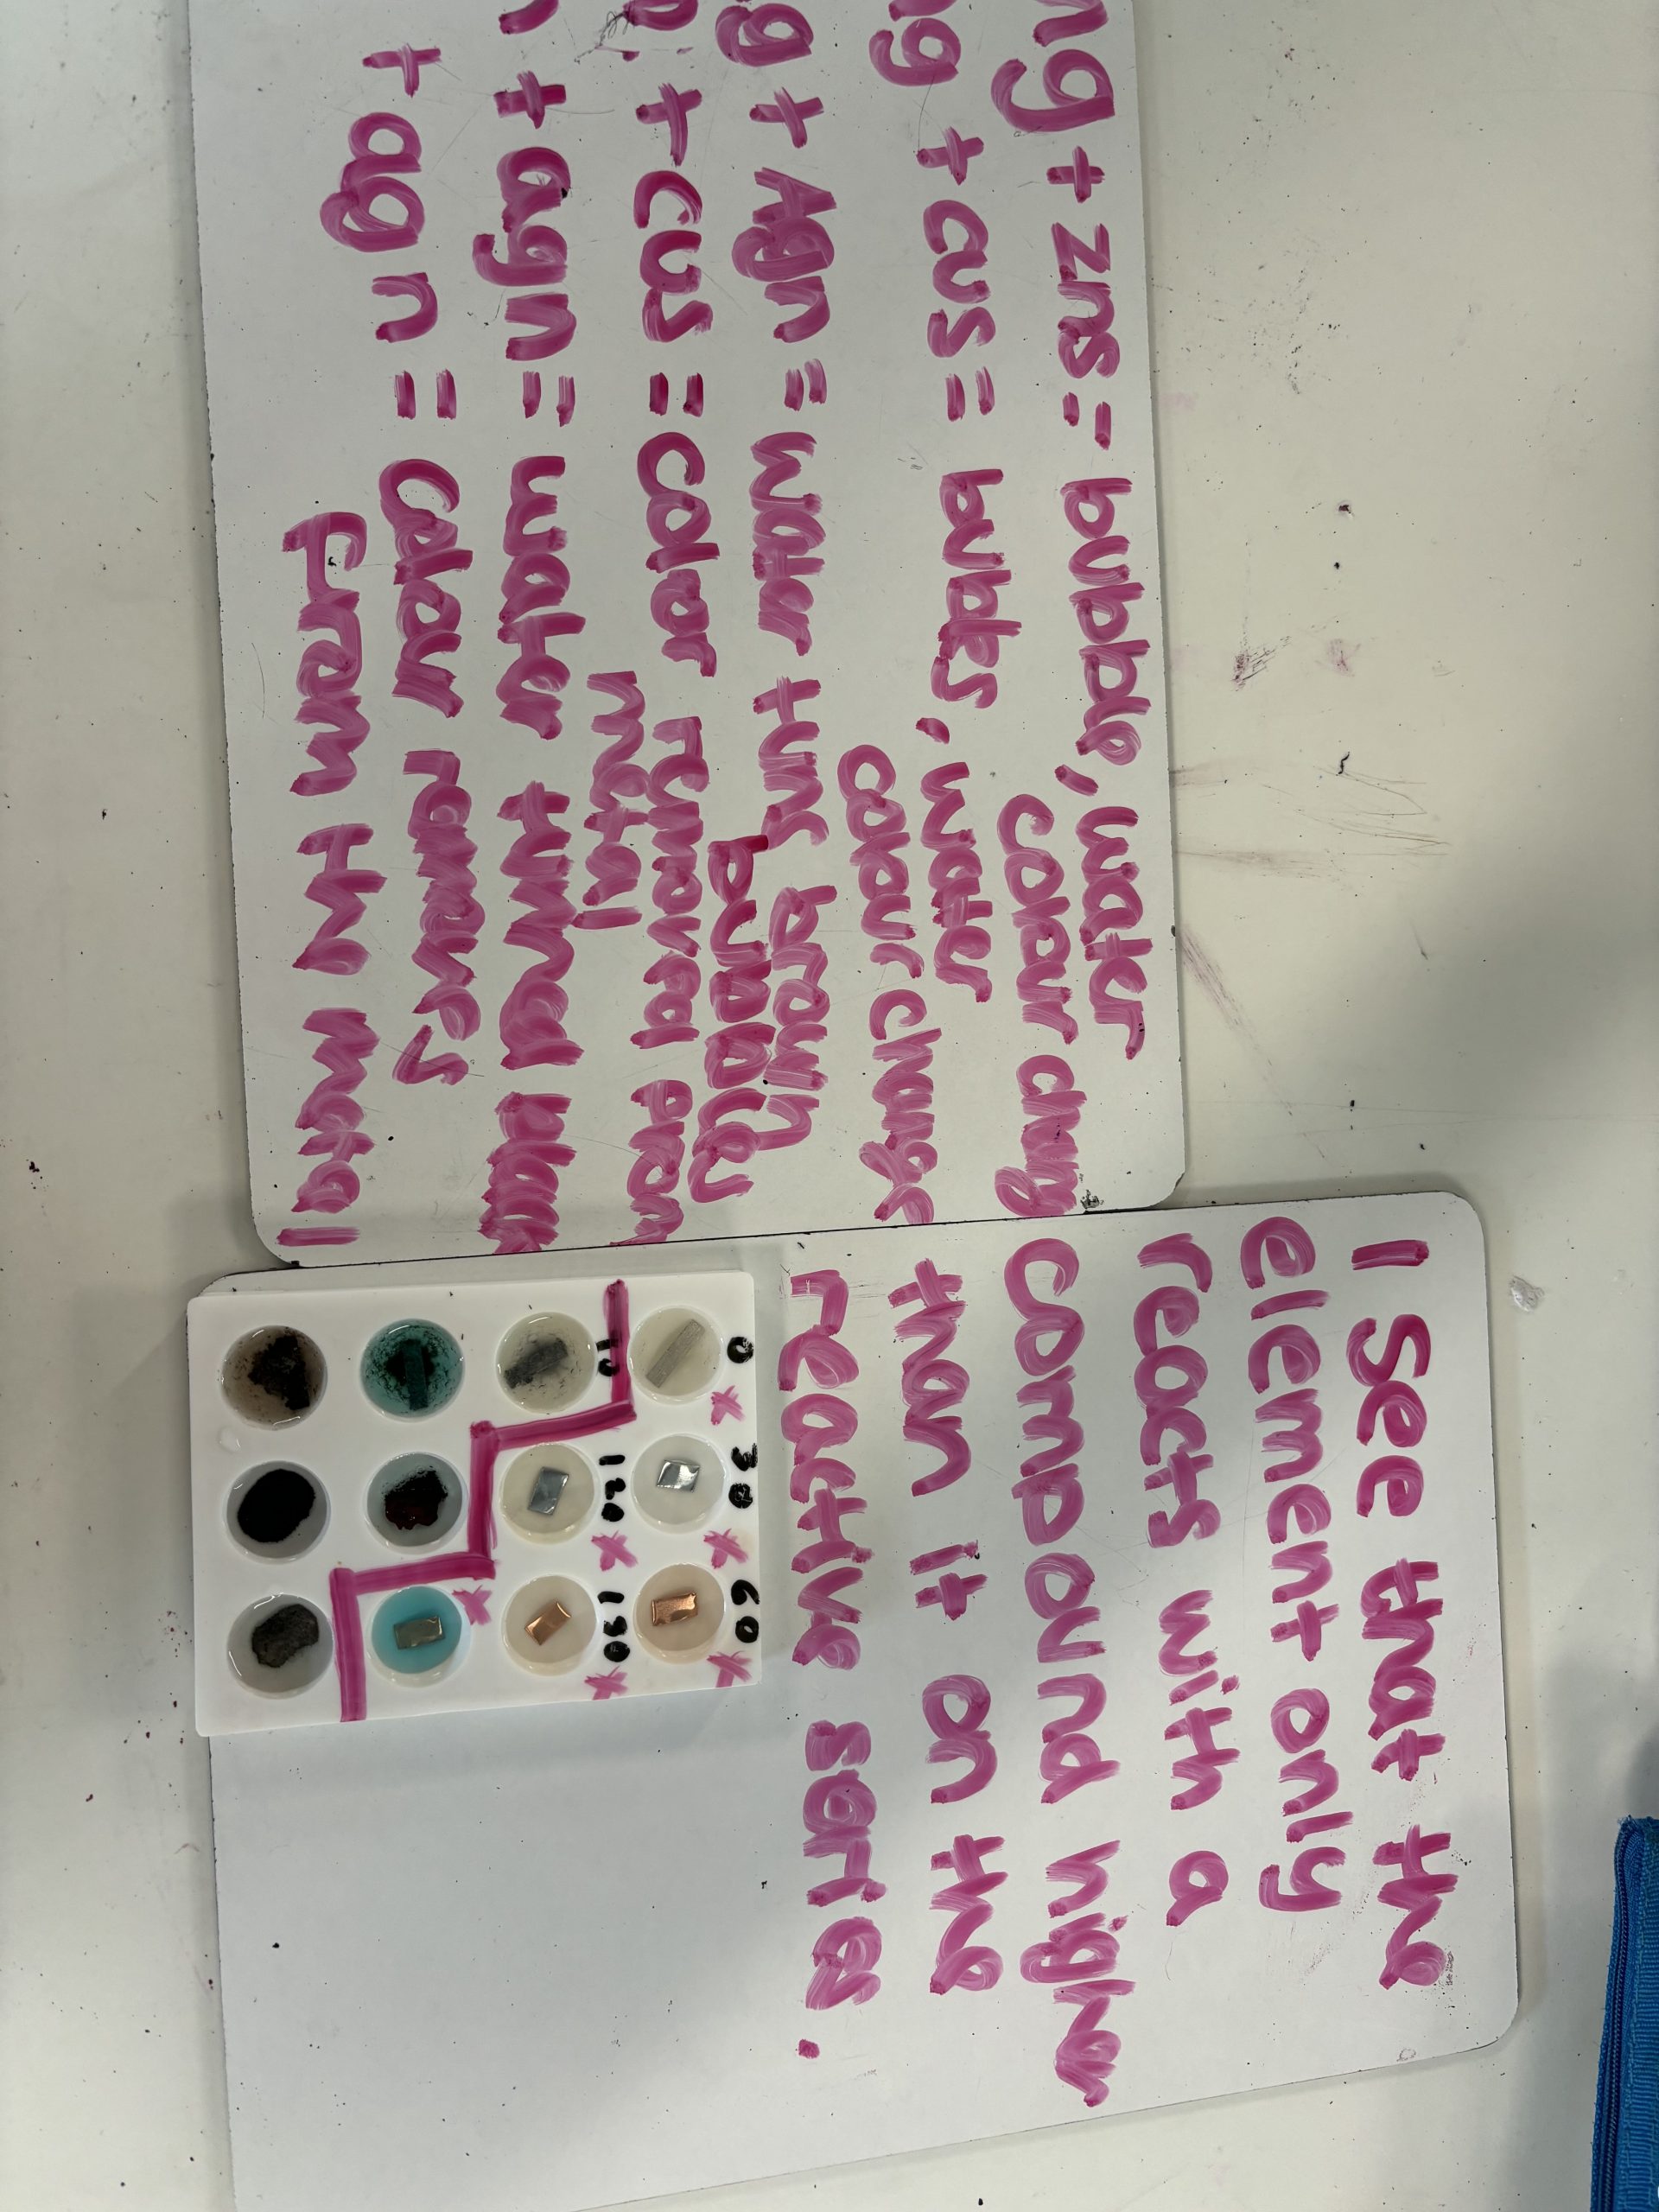 ng + zns = bubble, water
colour chang
g + cus = bubbles, water
colour change
g + Agn = water turns brown
bubbbly
+ cus = color removed from
metal
+ agn = water turned blac
+ agn = colour ramoves
from thw metal
I see that the
element only
reacts with a
compound higher
than it on the
reactive series.
0 30 60
120 150